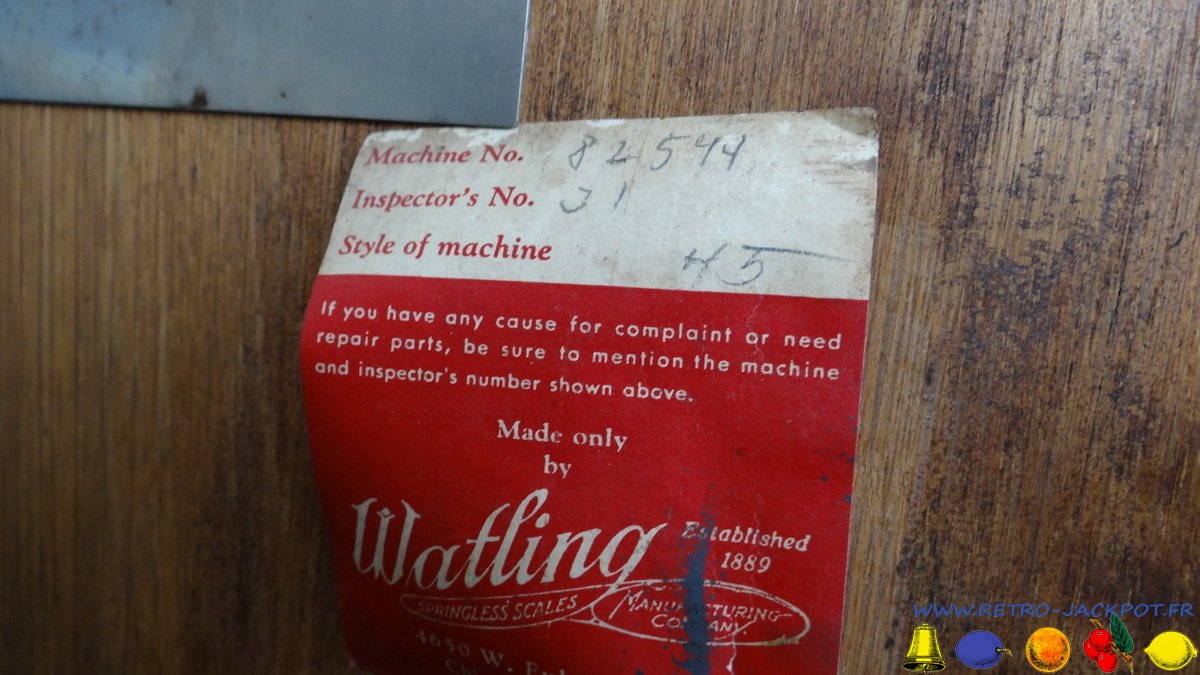 Machine No. 82544
Inspector's No. 31
Style of machine H5
If you have any cause for complaint or need
repair parts, be sure to mention the machine
and inspector's number shown above.
Made only
by
Watling
Established
1889
SPRINGLESS SCALES
MANUFACTURING
COMPANY
4650 W.
WWW.RETRO-JACKPOT.FR